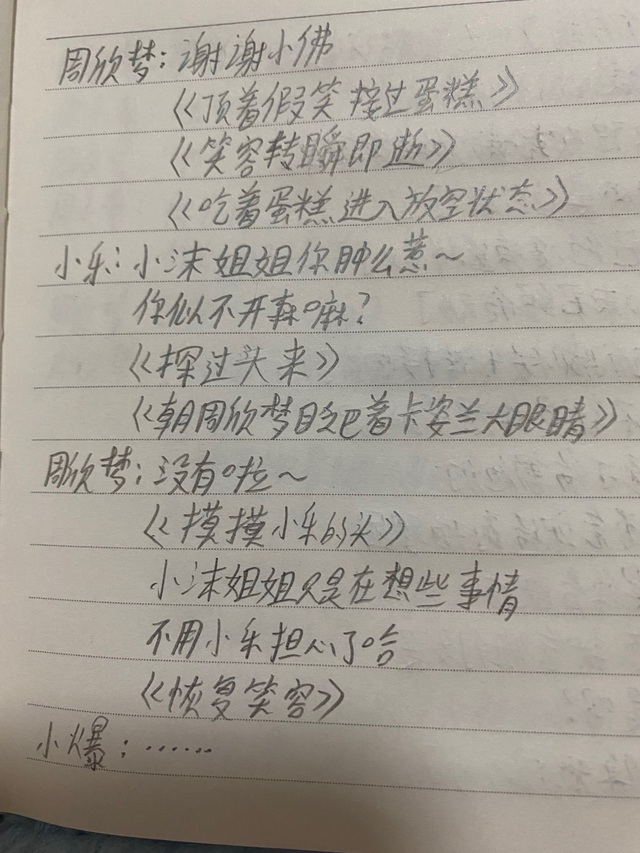 周欣梦：谢谢小佛
《顶着假笑 接过蛋糕》
《笑容转瞬即逝》
《吃着蛋糕进入放空状态》
小乐：小沫姐姐你肿么惹～
你似不开森嘛？
《探过头来》
《朝周欣梦眨巴着卡姿兰大眼睛》
周欣梦：没有啦～
《摸摸小乐的头》
小沫姐姐只是在想些事情
不用小乐担心了哈
《恢复笑容》
小爆：……